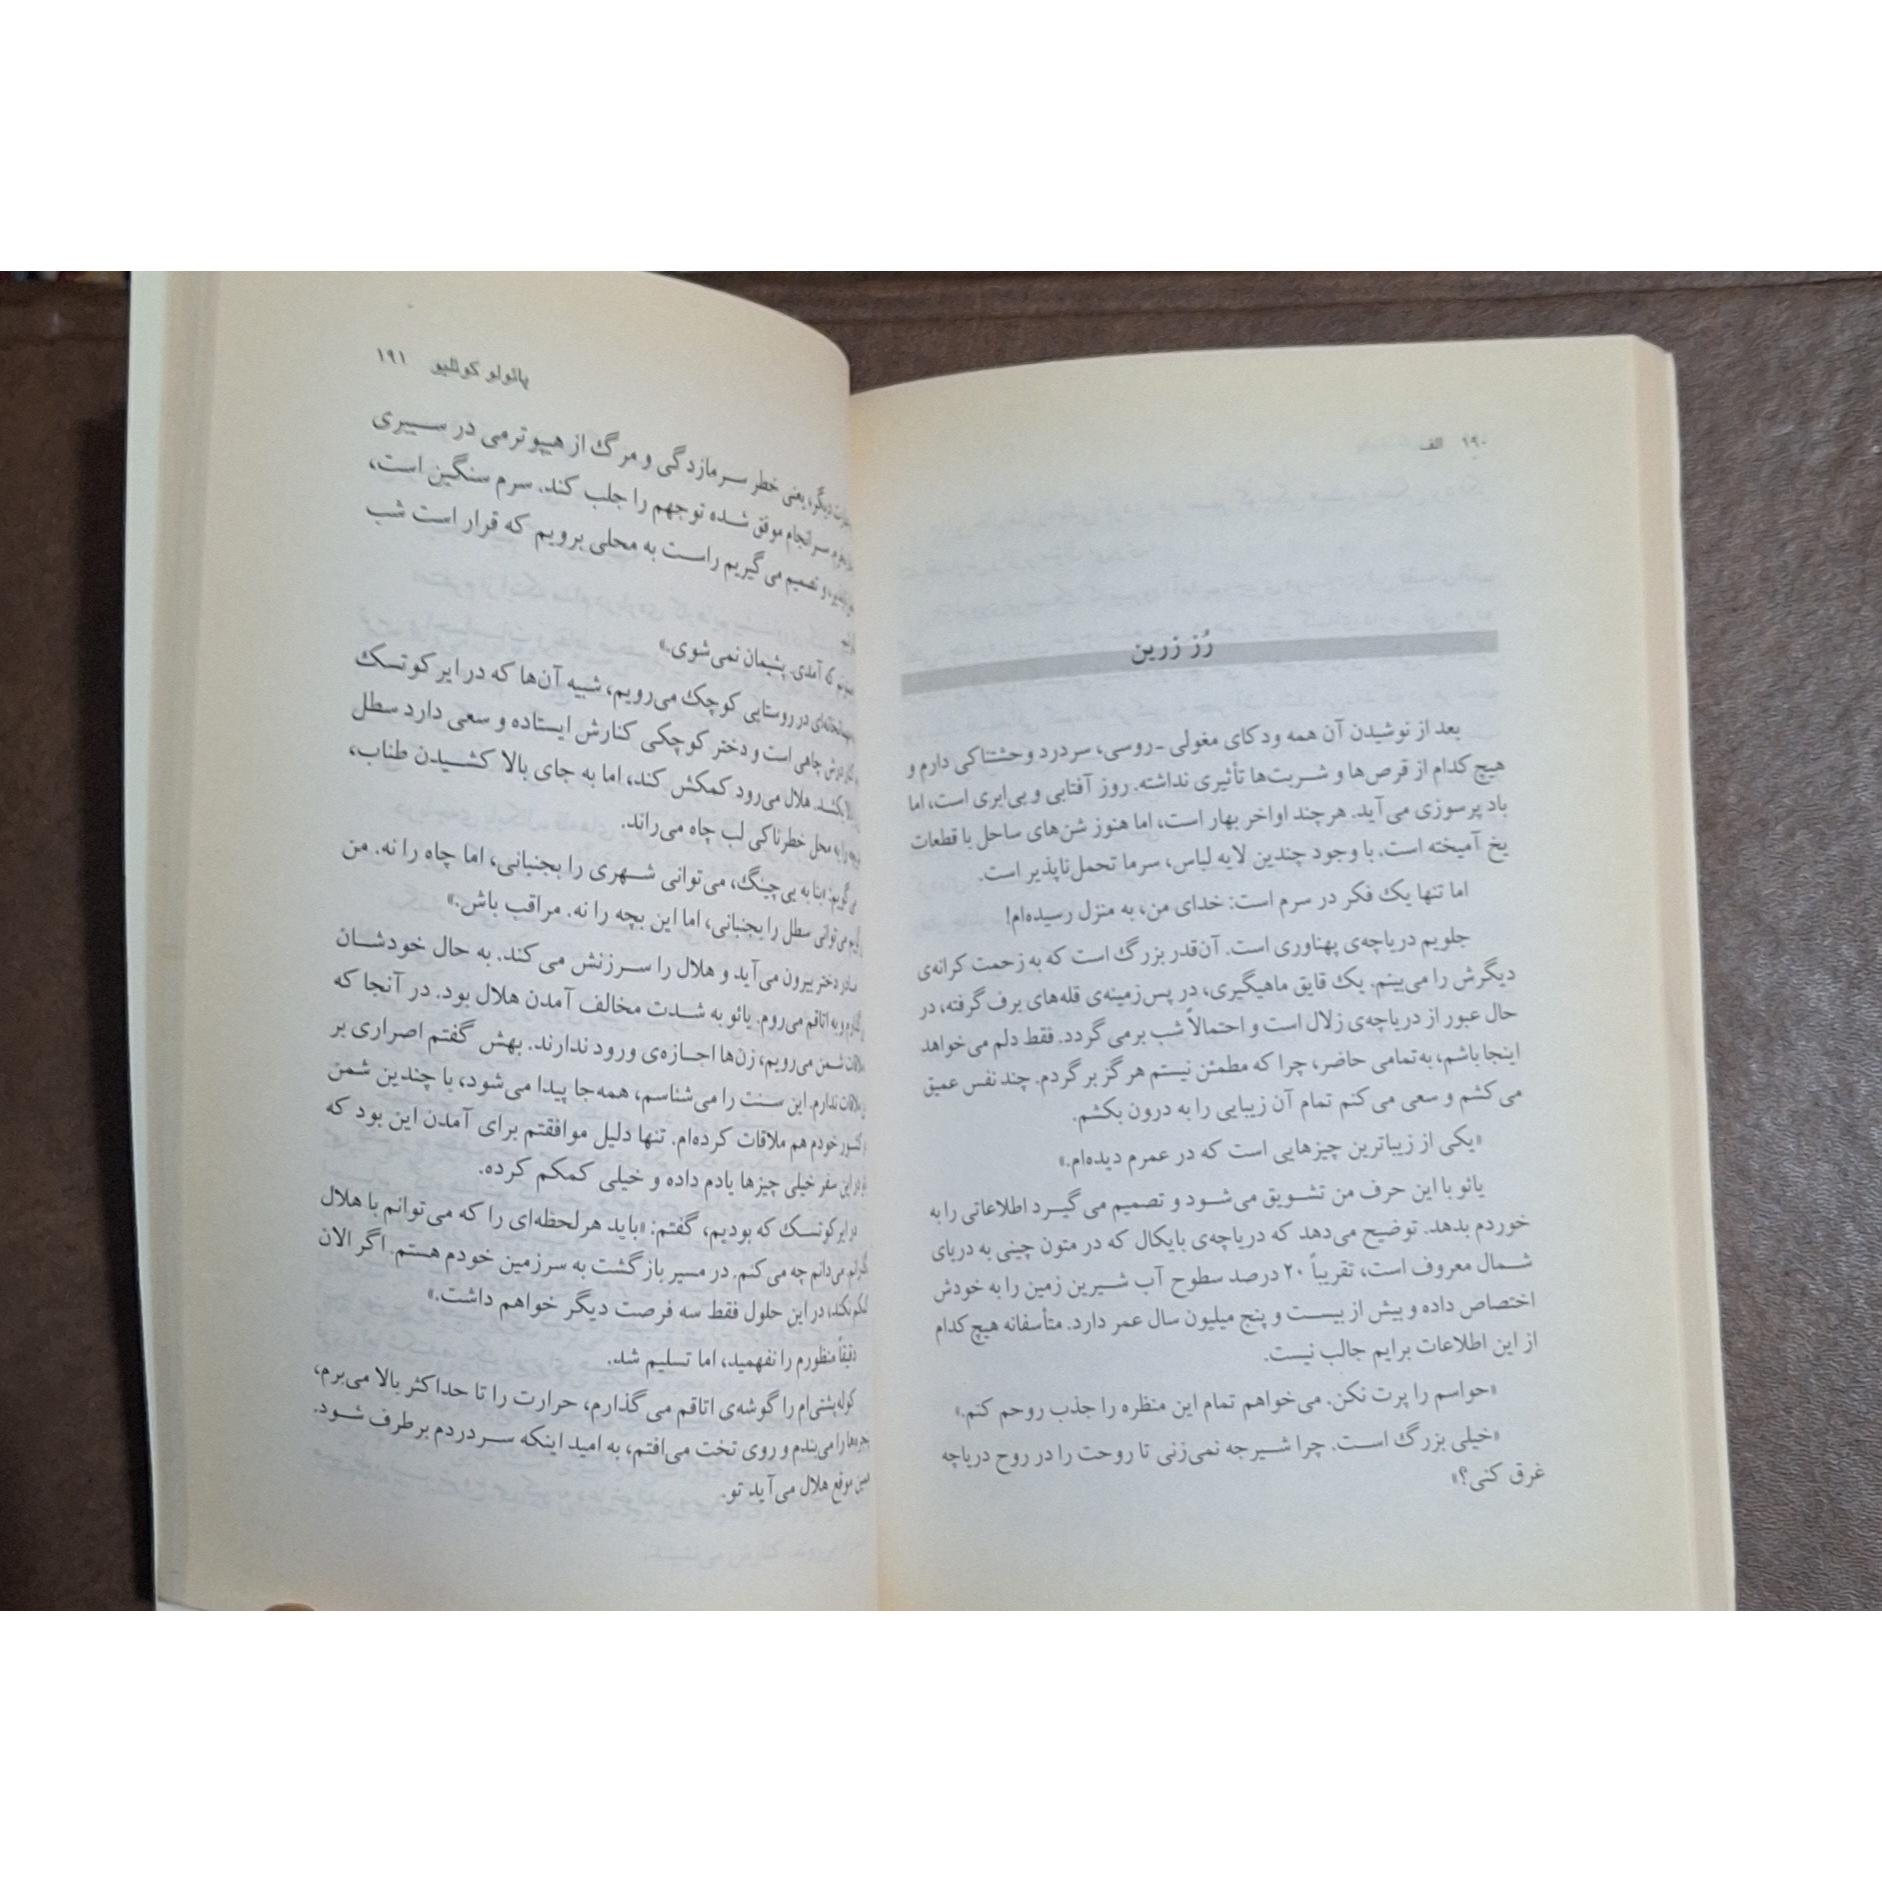 ۱۹۰ الف
رُز زرین
بعد از نوشیدن آن همه ودکای مغولی -روسی، سردرد وحشتاکی دارم و
هیچ کدام از قرص‌ها و شربت‌ها تأثیری نداشته. روز آفتابی و بی‌ابری است، اما
باد پرسوزی می‌آید. هرچند اواخر بهار است، اما هنوز شن‌های ساحل با قطعات
یخ آمیخته است. با وجود چندین لایه لباس، سرما تحمل‌ناپذیر است.
اما تنها یک فکر در سرم است: خدای من، به منزل رسیده‌ام!
جلویم دریاچه‌ی پهناوری است. آن‌قدر بزرگ است که به زحمت کرانه‌ی
دیگرش را می‌بینم. یک قایق ماهیگیری، در پس‌زمینه‌ی قله‌های برف گرفته، در
حال عبور از دریاچه‌ی زلال است و احتمالاً شب برمی‌گردد. فقط دلم می‌خواهد
اینجا باشم، به‌تمامی حاضر، چرا که مطمئن نیستم هرگز برگردم. چند نفس عمیق
می‌کشم و سعی می‌کنم تمام آن زیبایی را به درون بکشم.
«یکی از زیباترین چیزهایی است که در عمرم دیده‌ام.»
یائو با این حرف من تشویق می‌شود و تصمیم می‌گیرد اطلاعاتی را به
خوردم بدهد. توضیح می‌دهد که دریاچه‌ی بایکال که در متون چینی به دریای
شمال معروف است، تقریباً ۲۰ درصد سطوح آب شیرین زمین را به خودش
اختصاص داده و بیش از بیست و پنج میلیون سال عمر دارد. متأسفانه هیچ کدام
از این اطلاعات برایم جالب نیست.
«حواسم را پرت نکن. می‌خواهم تمام این منظره را جذب روحم کنم.»
«خیلی بزرگ است. چرا شیرجه نمی‌زنی تا روحت را در روح دریاچه
غرق کنی؟»
پائولو کوئلیو ۱۹۱
دیگر، یعنی خطر سرمازدگی و مرگ از هیپوترمی در سیبری
سرانجام موفق شده توجهم را جلب کند. سرم سنگین است،
و تصمیم می‌گیریم راست به محلی برویم که قرار است شب
که آمدی. پشیمان نمی‌شوی.»
در روستایی کوچک می‌رویم، شبیه آن‌ها که در ایرکوتسک
چاهی است و دختر کوچکی کنارش ایستاده و سعی دارد سطل
بکشد. هلال می‌رود کمکش کند، اما به جای بالا کشیدن طناب،
را به محل خطرناکی لب چاه می‌راند.
می‌گویم: «بنا به یی‌چینگ، می‌توانی شهری را بجنبانی، اما چاه را نه. من
می‌توانی سطل را بجنبانی، اما این بچه را نه. مراقب باش.»
مادر دختر بیرون می‌آید و هلال را سرزنش می‌کند. به حال خودشان
و به اتاقم می‌روم. یائو به شدت مخالف آمدن هلال بود. در آنجا که
شمن می‌رویم، زن‌ها اجازه‌ی ورود ندارند. بهش گفتم اصراری بر
ملاقات ندارم. این سنت را می‌شناسم، همه‌جا پیدا می‌شود، با چندین شمن
کشور خودم هم ملاقات کرده‌ام. تنها دلیل موافقتم برای آمدن این بود که
در این سفر خیلی چیزها یادم داده و خیلی کمکم کرده.
در ایرکوتسک که بودیم، گفتم: «باید هر لحظه‌ای را که می‌توانم با هلال
می‌دانم چه می‌کنم. در مسیر بازگشت به سرزمین خودم هستم. اگر الان
نکند، در این حلول فقط سه فرصت دیگر خواهم داشت.»
دقیقاً منظورم را نفهمید، اما تسلیم شد.
کوله‌پشتی‌ام را گوشه‌ی اتاقم می‌گذارم، حرارت را تا حداکثر بالا می‌برم،
را می‌بندم و روی تخت می‌افتم، به امید اینکه سردردم برطرف شود.
موقع هلال می‌آید تو.